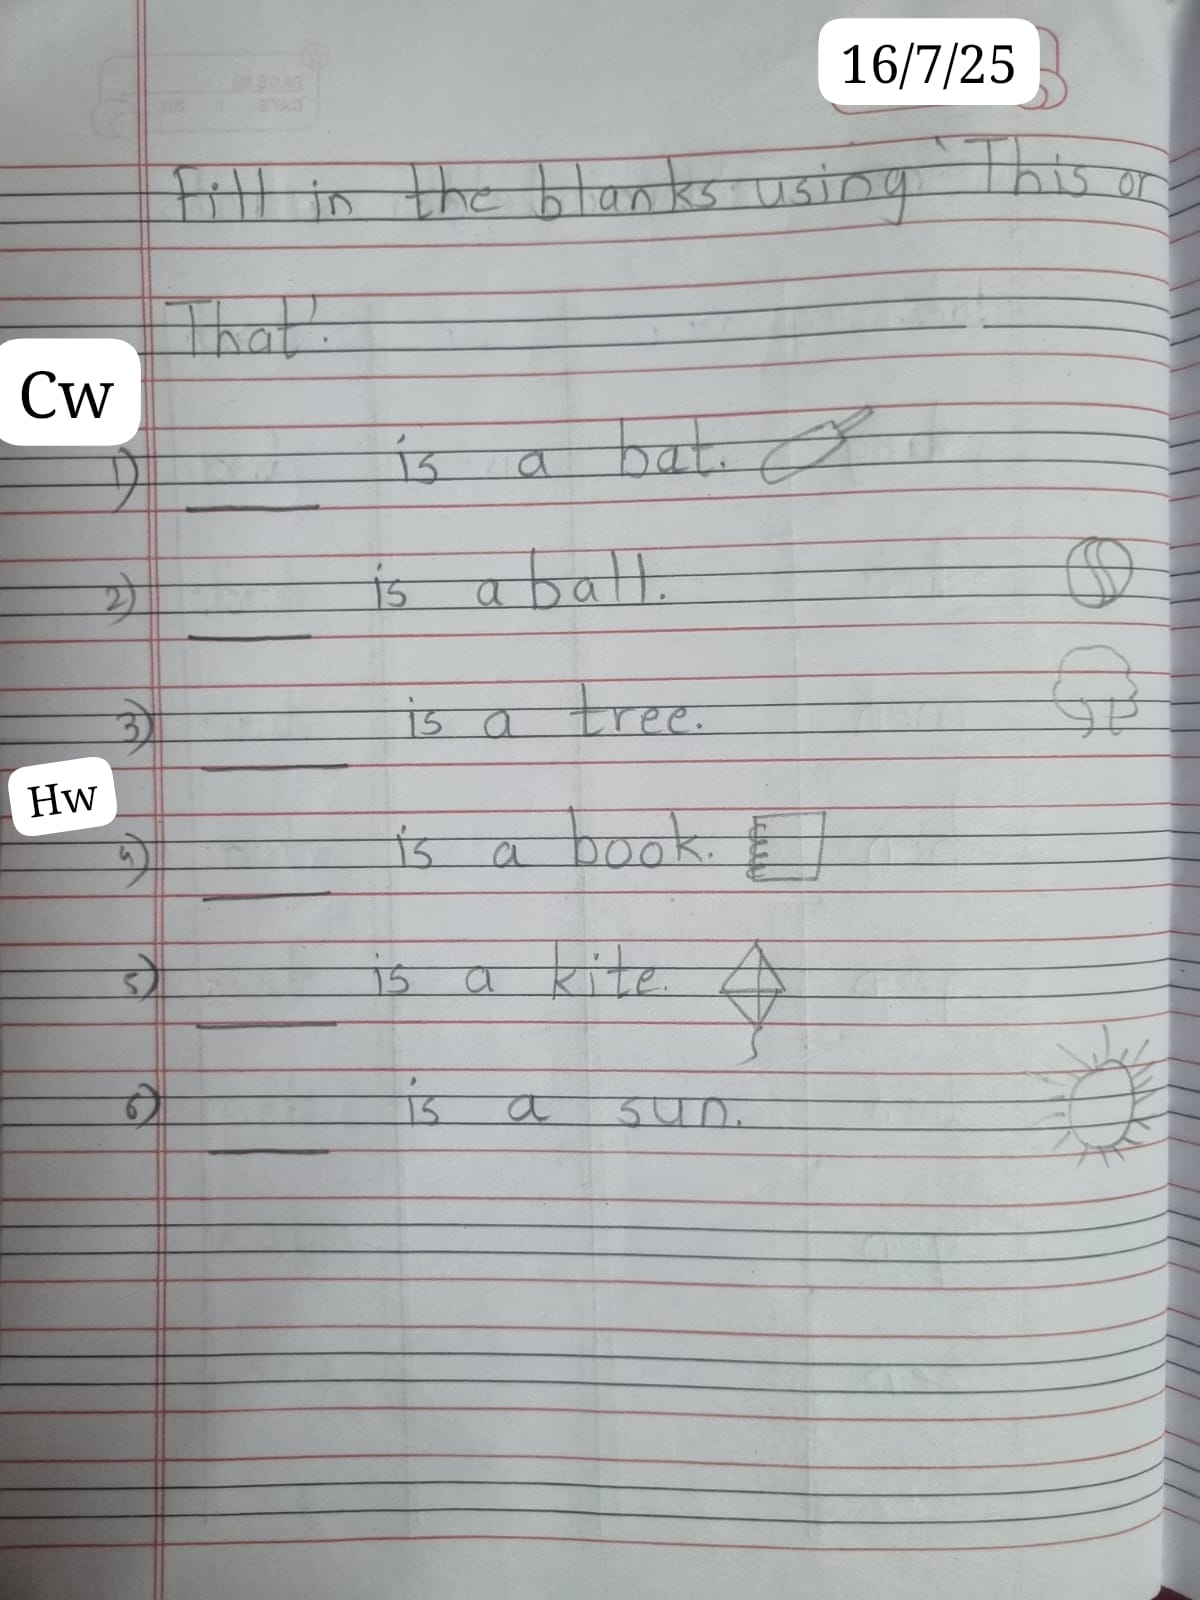 16/7/25
Fill in the blanks using 'This or
That'.
Cw
1) ____ is a bat.
2) ____ is a ball.
3) ____ is a tree.
Hw
4) ____ is a book.
5) ____ is a kite.
6) ____ is a sun.